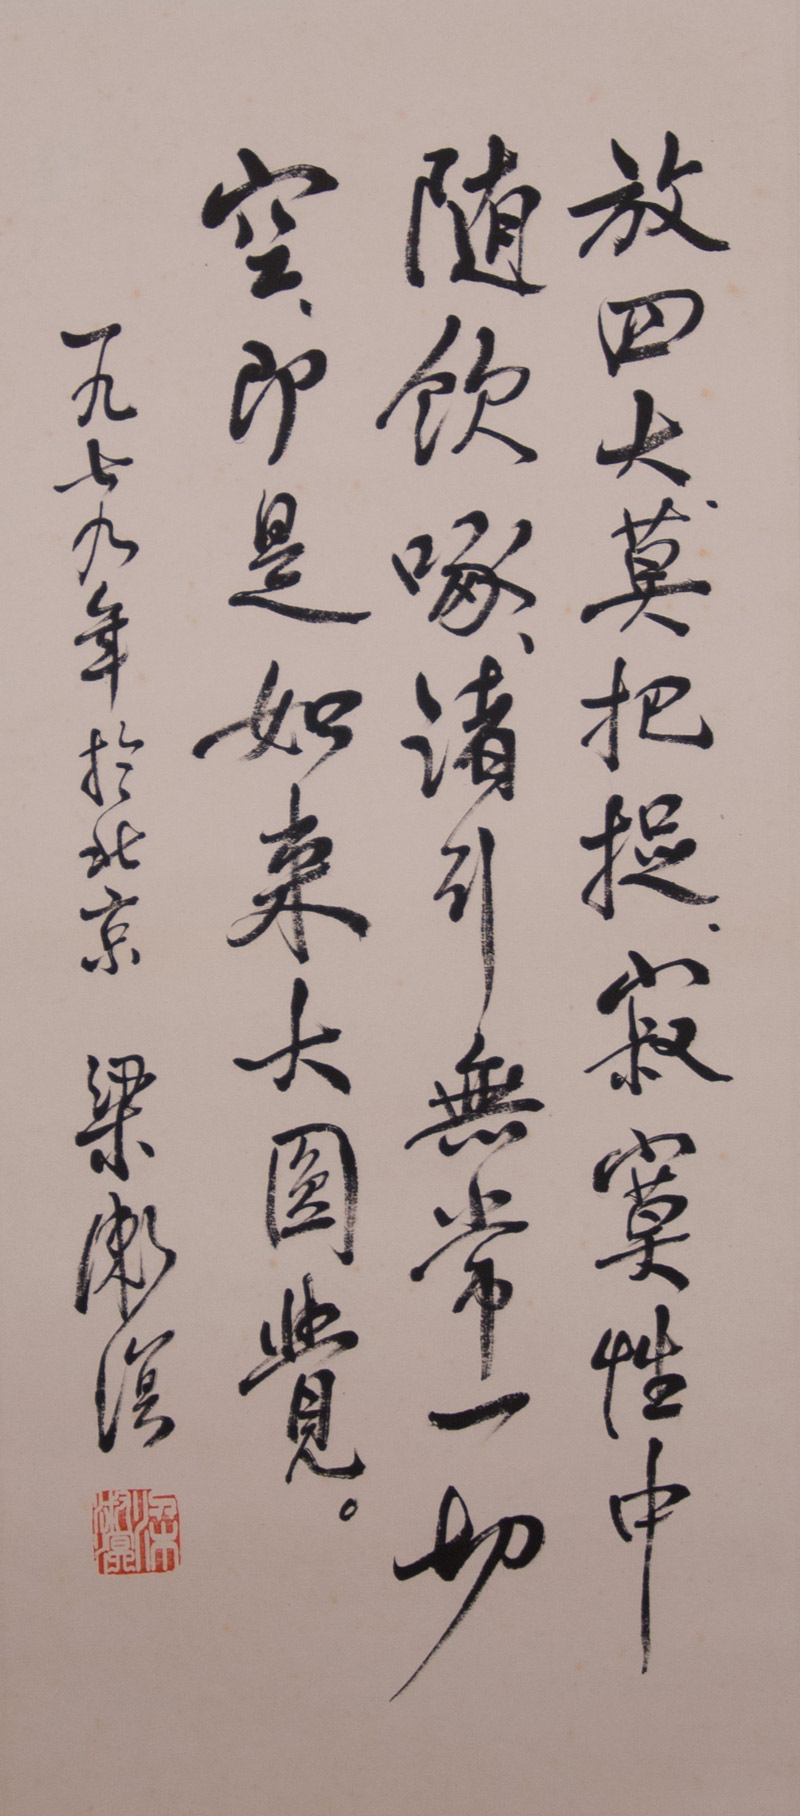 放四大、莫把捉、寂寞性中
随飲啄、諸行無常一切
空、即是如来大圓覺。
一九七九年於北京 梁漱溟
梁漱溟